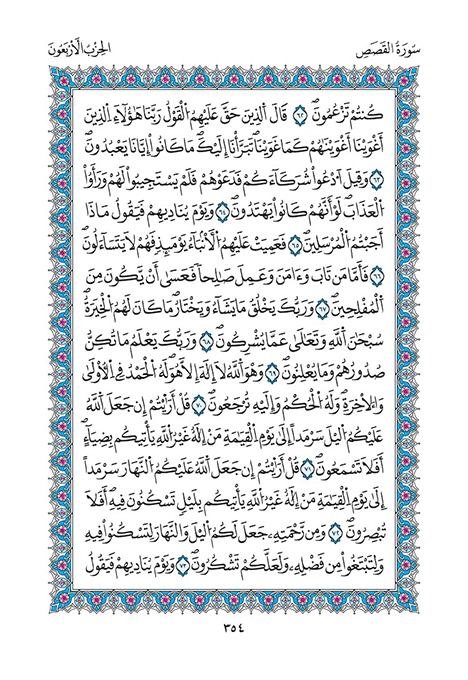 سُورَةُ القَصَصِ
الحِزْبُ الَارْبَعُونَ
كُنتُمْ تَزْعُمُونَۖ ٦٢ قَالَ اَلذِينَ حَقَّ عَلَيْهِمُ اُلْقَوْلُ رَبَّنَا هَٰٓؤُلَآءِ اِلذِينَ
أَغْوَيْنَآ أَغْوَيْنَٰهُمْ كَمَا غَوَيْنَاۖ تَبَرَّأْنَآ إِلَيْكَۖ مَا كَانُوٓاْ إِيَّانَا يَعْبُدُونَۖ
٦٣ وَقِيلَ اَدْعُواْ شُرَكَآءَكُمْ فَدَعَوْهُمْ فَلَمْ يَسْتَجِيبُواْ لَهُمْ وَرَأَوُاْ
اُلْعَذَابَۖ لَوَ اَنَّهُمْ كَانُواْ يَهْتَدُونَۖ ٦٤ وَيَوْمَ يُنَادِيهِمْ فَيَقُولُ مَاذَآ
أَجَبْتُمُ اُلْمُرْسَلِينَۖ ٦٥ فَعَمِيَتْ عَلَيْهِمُ اُلَانۢبَآءُ يَوْمَئِذٖ فَهُمْ لَا يَتَسَآءَلُونَۖ
٦٦ فَأَمَّا مَن تَابَ وَءَامَنَ وَعَمِلَ صَٰلِحاٗ فَعَسَىٰٓ أَنْ يَّكُونَ مِنَ
اَلْمُفْلِحِينَۖ ٦٧ وَرَبُّكَ يَخْلُقُ مَا يَشَآءُ وَيَخْتَارُۖ مَا كَانَ لَهُمُ اُلْخِيَرَةُۖ
سُبْحَٰنَ اَللَّهِ وَتَعَٰلَىٰ عَمَّا يُشْرِكُونَۖ ٦٨ وَرَبُّكَ يَعْلَمُ مَا تُكِنُّ
صُدُورُهُمْ وَمَا يُعْلِنُونَۖ ٦٩ وَهُوَ اَللَّهُ لَآ إِلَٰهَ إِلَّا هُوَۖ لَهُ اُلْحَمْدُ فِي اِلُاولَىٰ
وَالَاخِرَةِۖ وَلَهُ اُلْحُكْمُ وَإِلَيْهِ تُرْجَعُونَۖ ٧٠ قُلَ اَرَٰيْتُمُۥٓ إِن جَعَلَ اَللَّهُ
عَلَيْكُمُ اُليْلَ سَرْمَداً اِلَىٰ يَوْمِ اِلْقِيَٰمَةِ مَنِ اِلَٰهٌ غَيْرُ اُللَّهِ يَأْتِيكُم بِضِيَآءٍۖ
اَفَلَا تَسْمَعُونَۖ ٧١ قُلَ اَرَٰيْتُمُۥٓ إِن جَعَلَ اَللَّهُ عَلَيْكُمُ اُلنَّهَارَ سَرْمَداً
اِلَىٰ يَوْمِ اِلْقِيَٰمَةِ مَنِ اِلَٰهٌ غَيْرُ اُللَّهِ يَأْتِيكُم بِلَيْلٖ تَسْكُنُونَ فِيهِۖ أَفَلَا
تُبْصِرُونَۖ ٧٢ وَمِن رَّحْمَتِهِۦ جَعَلَ لَكُمُ اُليْلَ وَالنَّهَارَ لِتَسْكُنُواْ فِيهِ
وَلِتَبْتَغُواْ مِن فَضْلِهِۦ وَلَعَلَّكُمْ تَشْكُرُونَۖ ٧٣ وَيَوْمَ يُنَادِيهِمْ فَيَقُولُ
٣٥٤